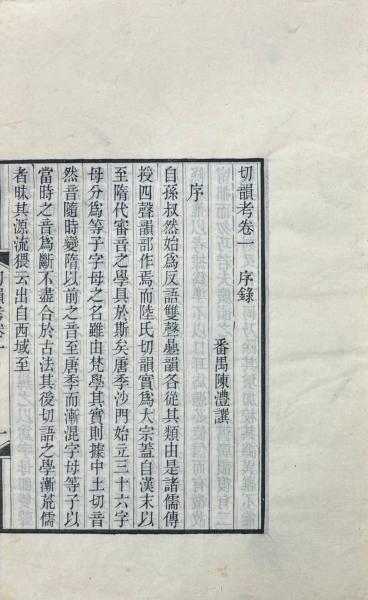 切韻考卷一　序錄
番禺陳澧譔
序
自孫叔然始爲反語雙聲疊韻各從其類由是諸儒傳
授四聲韻部作焉而陸氏切韻實爲大宗蓋自漢末以
至隋代審音之學具於斯矣唐季沙門始立三十六字
母分爲等子字母之名雖由梵學其實則據中土切音
然音隨時變隋以前之音至唐季而漸混字母等子以
當時之音爲斷不盡合於古法其後切語之學漸荒儒
者昧其源流猥云出自西域至